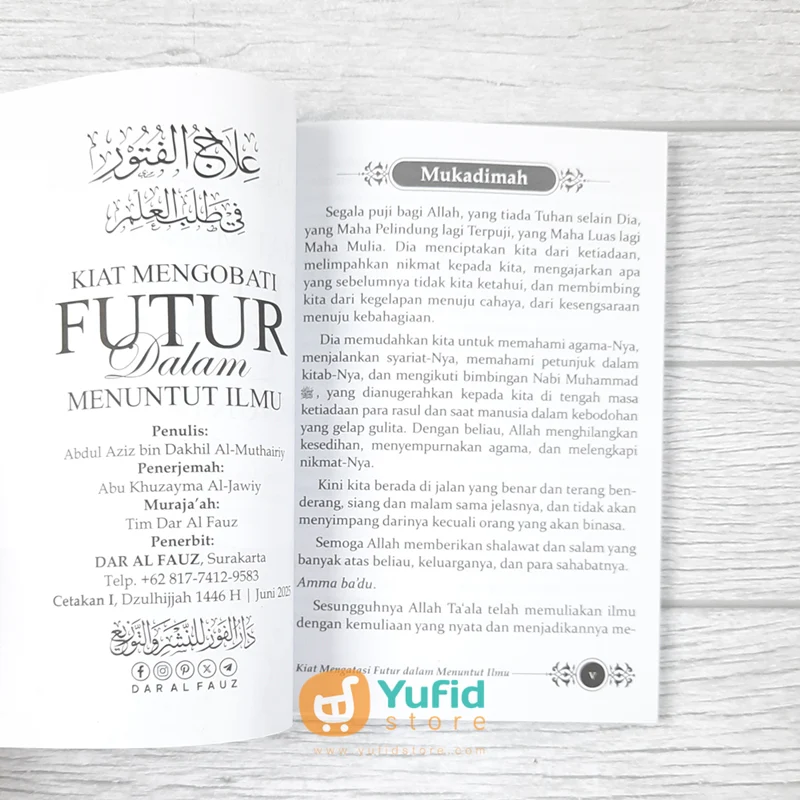 علاج الفتور
في طلب العلم
KIAT MENGOBATI
FUTUR
Dalam
MENUNTUT ILMU
Penulis:
Abdul Aziz bin Dakhil Al-Muthairiy
Penerjemah:
Abu Khuzayma Al-Jawiy
Muraja'ah:
Tim Dar Al Fauz
Penerbit:
DAR AL FAUZ, Surakarta
Telp. +62 817-7412-9583
Cetakan I, Dzulhijjah 1446 H | Juni 2025
دار الفوز للنشر والتوزيع
DAR AL FAUZ
Mukadimah
Segala puji bagi Allah, yang tiada Tuhan selain Dia,
yang Maha Pelindung lagi Terpuji, yang Maha Luas lagi
Maha Mulia. Dia menciptakan kita dari ketiadaan,
melimpahkan nikmat kepada kita, mengajarkan apa
yang sebelumnya tidak kita ketahui, dan membimbing
kita dari kegelapan menuju cahaya, dari kesengsaraan
menuju kebahagiaan.
Dia memudahkan kita untuk memahami agama-Nya,
menjalankan syariat-Nya, memahami petunjuk dalam
kitab-Nya, dan mengikuti bimbingan Nabi Muhammad
ﷺ, yang dianugerahkan kepada kita di tengah masa
ketiadaan para rasul dan saat manusia dalam kebodohan
yang gelap gulita. Dengan beliau, Allah menghilangkan
kesedihan, menyempurnakan agama, dan melengkapi
nikmat-Nya.
Kini kita berada di jalan yang benar dan terang ben-
derang, siang dan malam sama jelasnya, dan tidak akan
menyimpang darinya kecuali orang yang akan binasa.
Semoga Allah memberikan shalawat dan salam yang
banyak atas beliau, keluarganya, dan para sahabatnya.
Amma ba'du.
Sesungguhnya Allah Ta'ala telah memuliakan ilmu
dengan kemuliaan yang nyata dan menjadikannya me-
Kiat Mengatasi Futur dalam Menuntut Ilmu
v
Yufid
store
www.yufidstore.com